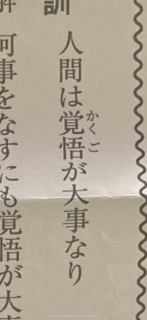 訓
人間は覚悟が大事なり
かくご
何事をなすにも覚悟が大